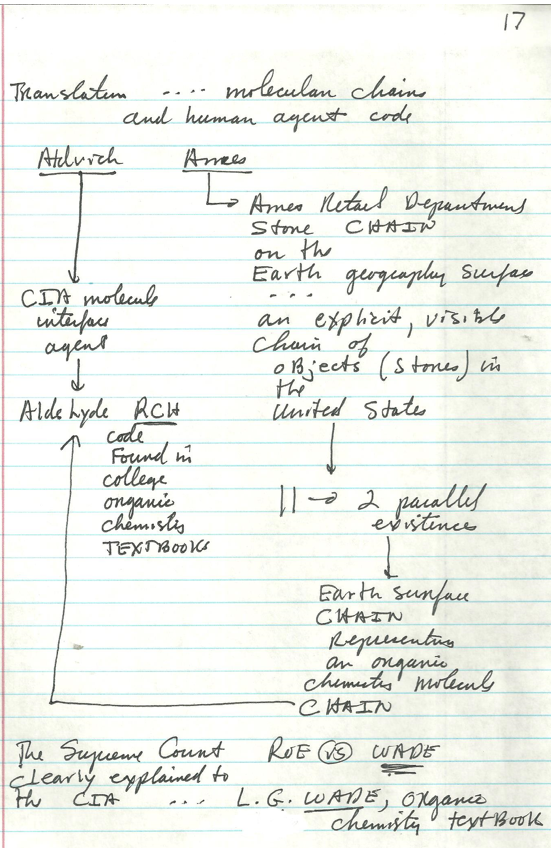 17
Translation .... molecular chains
and human agent code
Aldrich Ames
Ames Retail Department
Store CHAIN
on the
Earth geography surface
...
an explicit, visible
chain of
objects (stores) in
the
United States
CIA molecule
interface
agent
Aldehyde RCH
code
Found in
college
organic
chemistry
TEXTBOOKS
|| → 2 parallel
existences
Earth surface
CHAIN
Representing
an organic
chemistry molecule
CHAIN
The Supreme Court ROE VS WADE
clearly explained to
the CIA ... L.G. WADE, organic
chemistry textBook